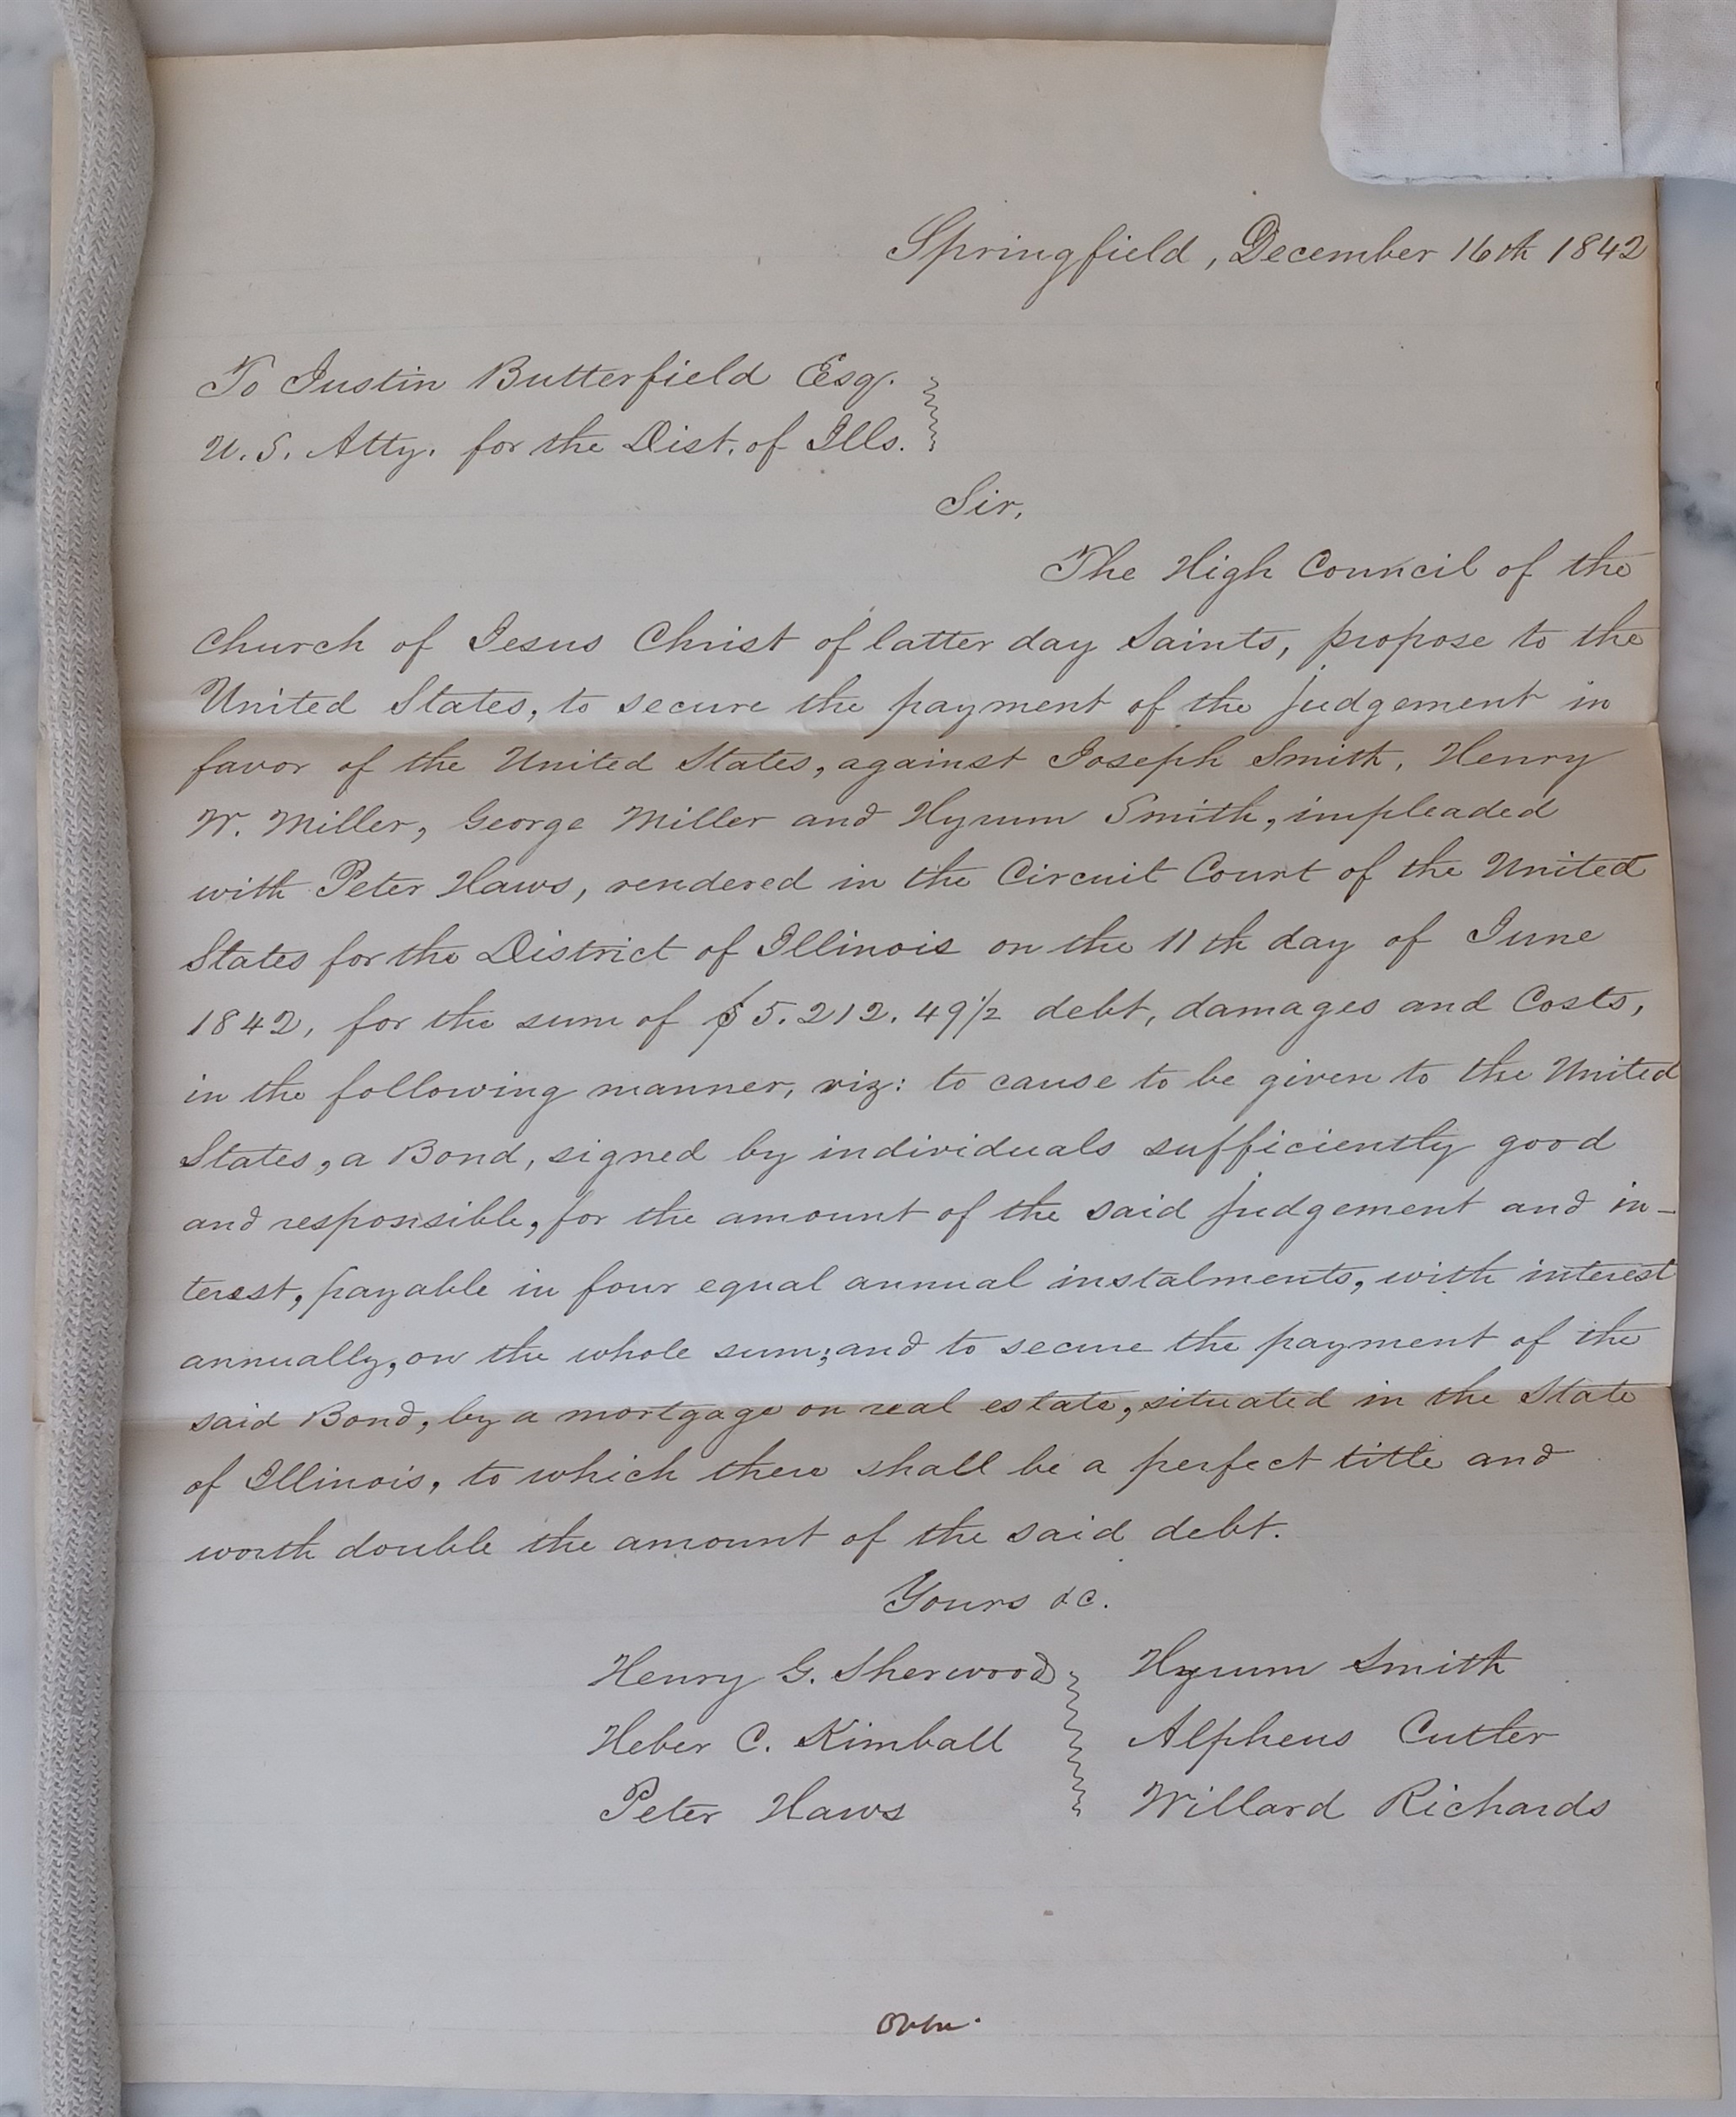 Springfield, December 16th 1842
To Justin Butterfield Esq.
U.S. Atty. for the Dist. of Ills.
Sir,
The High Council of the
church of Jesus Christ of latter day Saints, propose to the
United States, to secure the payment of the judgement in
favor of the United States, against Joseph Smith, Henry
W. Miller, George Miller and Hyrum Smith, impleaded
with Peter Haws, rendered in the Circuit Court of the United
States for the District of Illinois on the 11th day of June
1842, for the sum of $5.212.49½ debt, damages and Costs,
in the following manner, viz: to cause to be given to the United
States, a Bond, signed by individuals sufficiently good
and responsible, for the amount of the said judgement and in-
terest, payable in four equal annual instalments, with interest
annually, on the whole sum; and to secure the payment of the
said Bond, by a mortgage on real estate, situated in the State
of Illinois, to which there shall be a perfect title and
worth double the amount of the said debt.
Yours &c.
Henry G. Sherwood Hyrum Smith
Heber C. Kimball Alpheus Cutler
Peter Haws Willard Richards
Over.